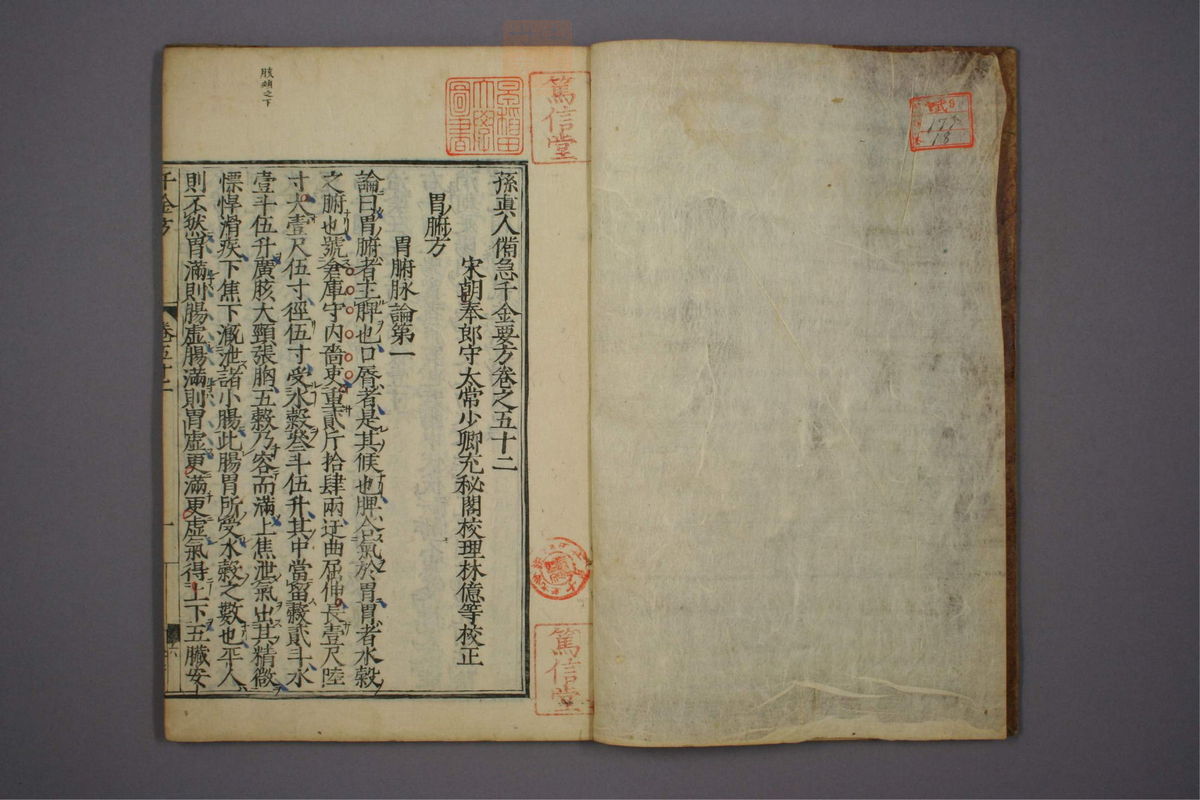 孫真人備急千金要方卷之五十二
宋朝奉郎守太常少卿充秘閣校理林億等校正
胃腑方
胃腑脉論第一
論曰胃腑者主脾也口唇者是其候也脾合氣於胃胃者水穀
之腑也號倉庫守內嗇吏重貳斤拾肆兩迂曲屈伸長壹尺陸
寸大壹尺伍寸徑伍寸受水穀叄斗伍升其中當留穀貳斗水
壹斗伍升廣胲大頸張胸五穀乃容而滿上焦泄氣出其精微
慓悍滑疾下焦下溉泄諸小腸此腸胃所受水穀之數也平人
則不然胃滿則腸虛腸滿則胃虛更滿更虛氣得上下五臟安
千金方 卷五十二 一
之下
篤信堂
早稻田大學圖書
篤信堂
9
18